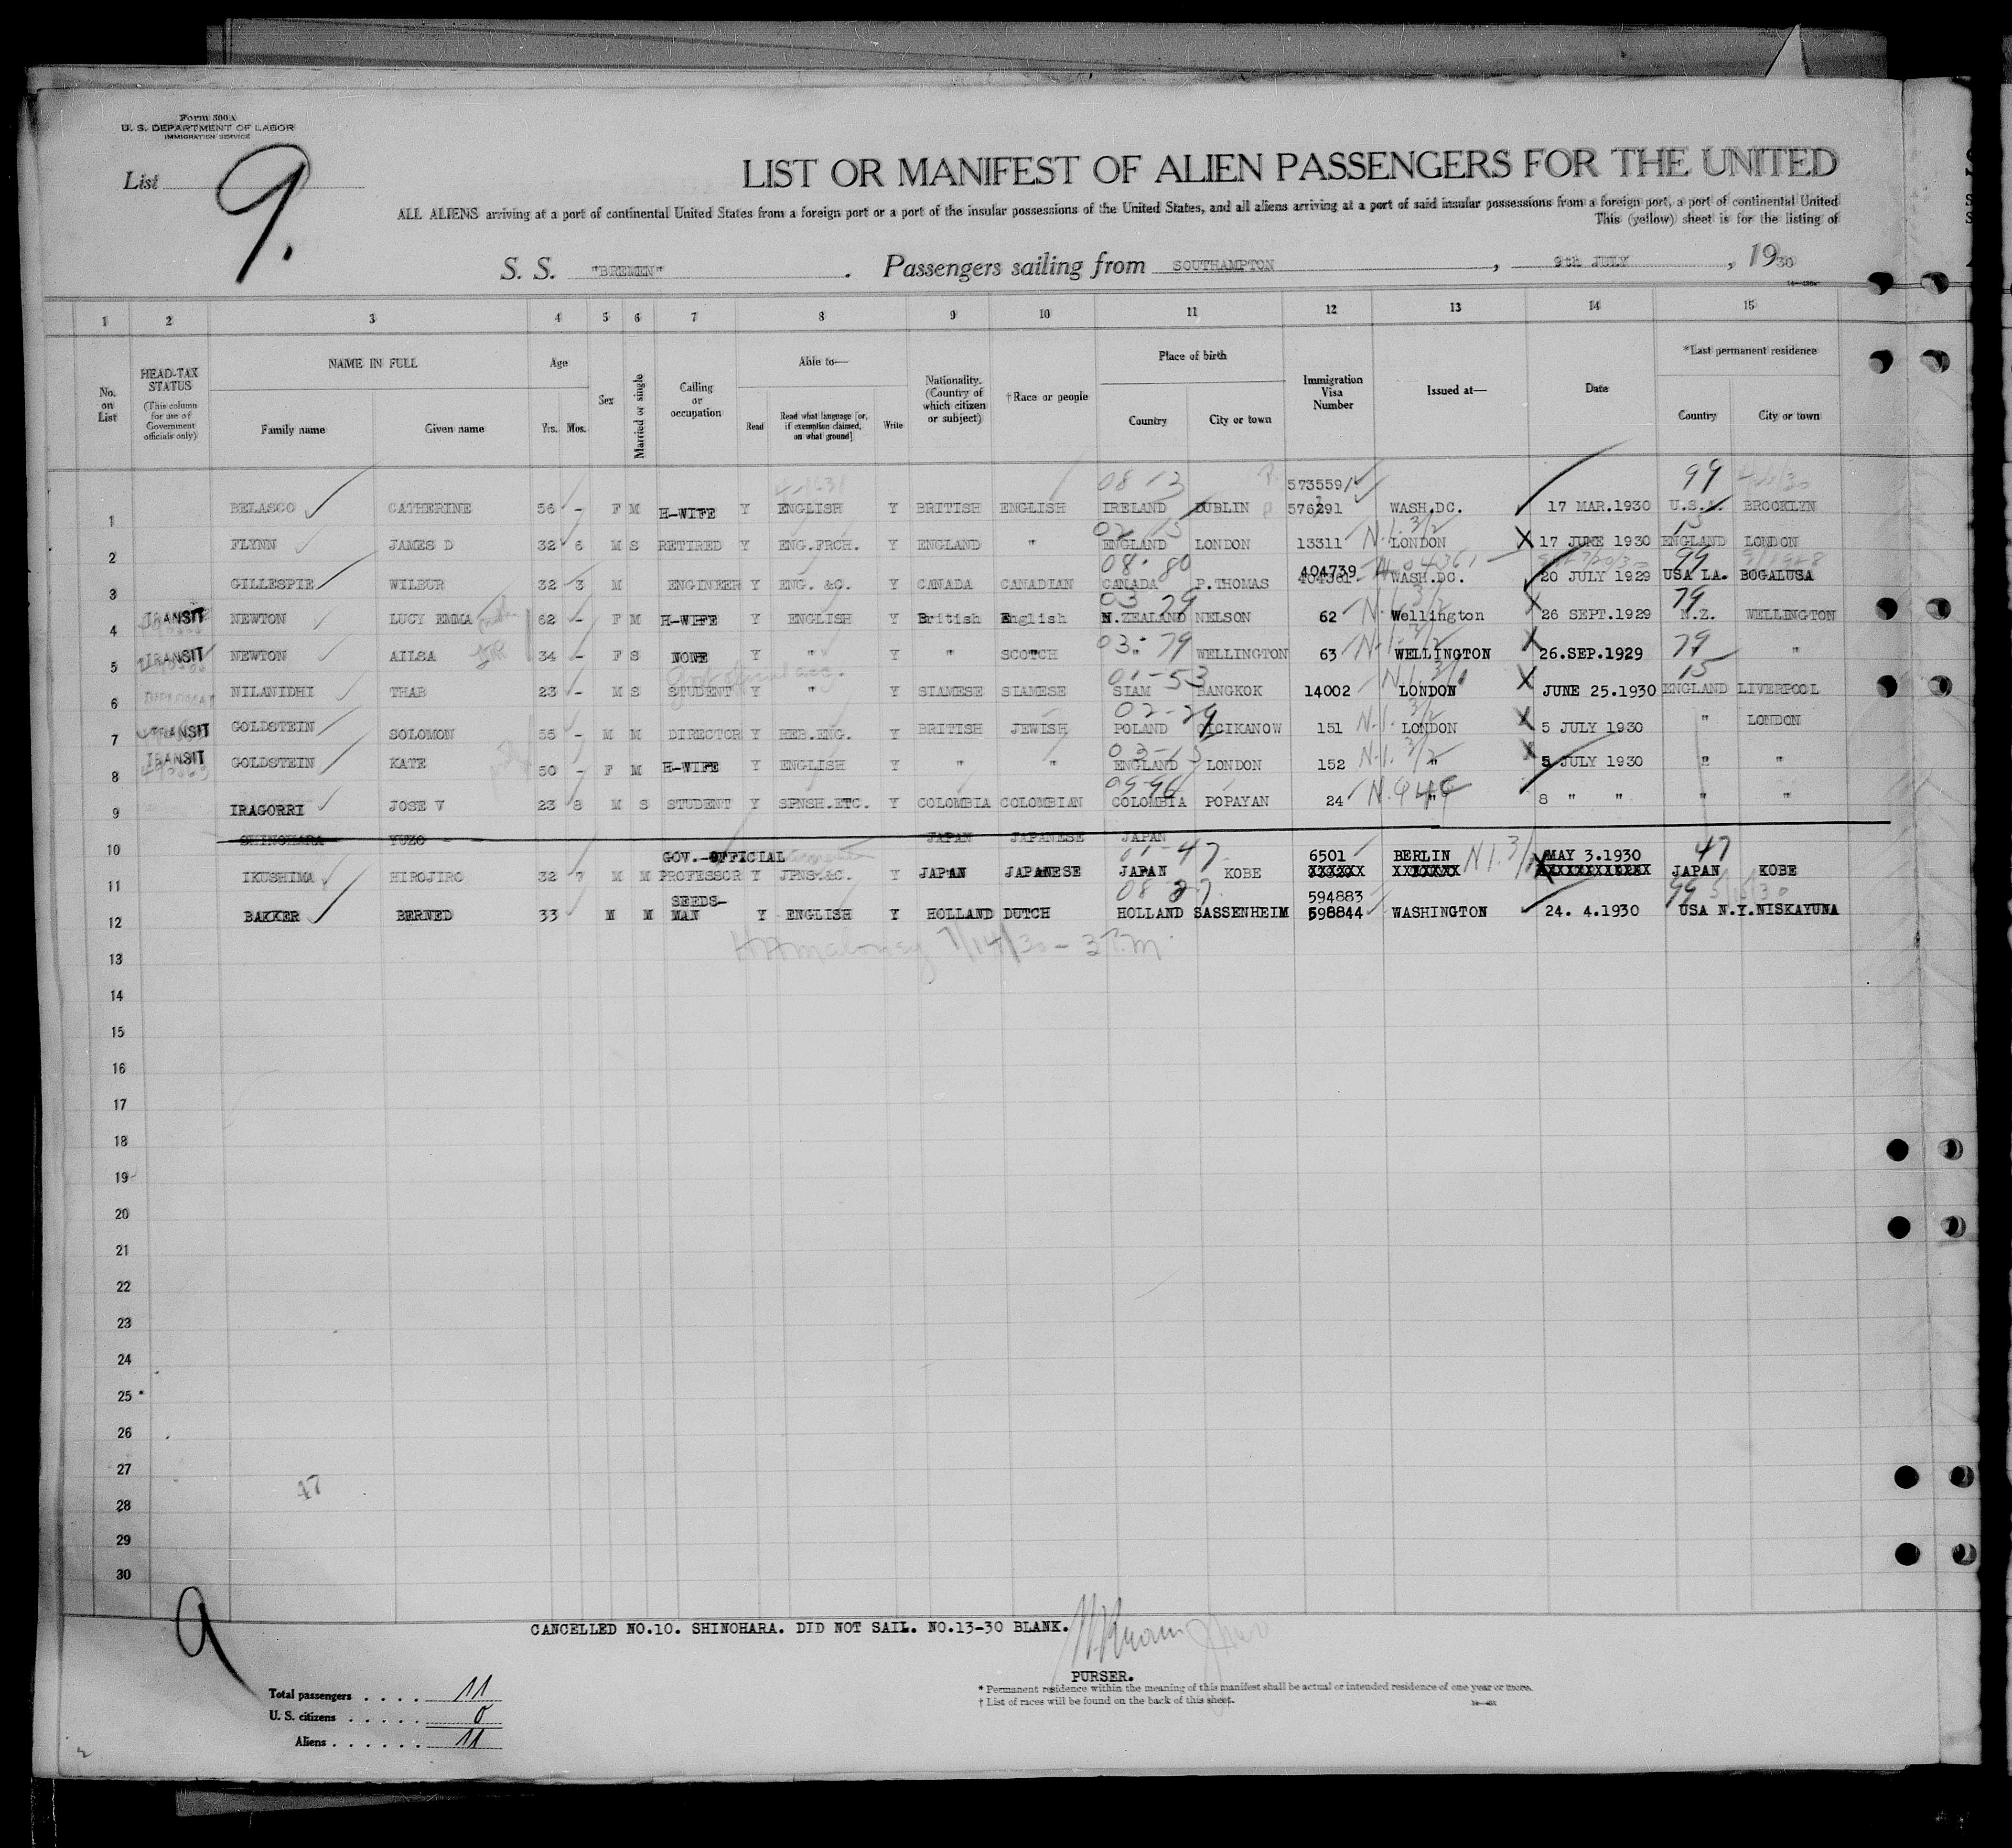 Form 500A
U. S. DEPARTMENT OF LABOR
IMMIGRATION SERVICE
List 9.
LIST OR MANIFEST OF ALIEN PASSENGERS FOR THE UNITED
ALL ALIENS arriving at a port of continental United States from a foreign port or a port of the insular possessions of the United States, and all aliens arriving at a port of said insular possessions from a foreign port, a port of continental United
This (yellow) sheet is for the listing of
S. S. "BREMEN" . Passengers sailing from SOUTHAMPTON , 9th JULY , 1930
1 2 3 4 5 6 7 8 9 10 11 12 13 14 15
No. on List
HEAD-TAX STATUS (This column for use of Government officials only)
NAME IN FULL Family name Given name
Age Yrs. Mos.
Sex
Married or single
Calling or occupation
Able to— Read Read what language [or, if exemption claimed, on what ground] Write
Nationality. (Country of which citizen or subject)
†Race or people
Place of birth Country City or town
Immigration Visa Number
Issued at—
Date
*Last permanent residence Country City or town
08 13 573559 99
1 BELASCO CATHERINE 56 - F M H-WIFE Y ENGLISH Y BRITISH ENGLISH IRELAND DUBLIN 576291 WASH.DC. 17 MAR.1930 U.S.A. BROOKLYN
02 15 N.I. 3/2 15
2 FLYNN JAMES D 32 6 M S RETIRED Y ENG.FRCH. Y ENGLAND " ENGLAND LONDON 13311 LONDON X 17 JUNE 1930 ENGLAND LONDON
08-80 404739 99
3 GILLESPIE WILBUR 32 3 M ENGINEER Y ENG. &C. Y CANADA CANADIAN CANADA P.THOMAS 404361 WASH.DC. 20 JULY 1929 USA LA. BOGALUSA
03 79 N.I. 3/2 79
4 TRANSIT NEWTON LUCY EMMA 62 - F M H-WIFE Y ENGLISH Y British English N.ZEALAND NELSON 62 Wellington X 26 SEPT.1929 N.Z. WELLINGTON
03-79 N.I. 3/2 79
5 TRANSIT NEWTON AILSA 34 - F S NONE Y " Y " SCOTCH " WELLINGTON 63 WELLINGTON X 26.SEP.1929 "
01-53 N.I. 3/1 15
6 DIPLOMAT NILANIDHI THAB 23 - M S STUDENT Y " Y SIAMESE SIAMESE SIAM BANGKOK 14002 LONDON X JUNE 25.1930 ENGLAND LIVERPOOL
02-29 N.I. 3/2
7 TRANSIT GOLDSTEIN SOLOMON 55 - M M DIRECTOR Y HEB.ENG. Y BRITISH JEWISH POLAND CICIKANOW 151 LONDON X 5 JULY 1930 " LONDON
03-15 N.I. 3/2
8 TRANSIT GOLDSTEIN KATE 50 - F M H-WIFE Y ENGLISH Y " " ENGLAND LONDON 152 " X 5 JULY 1930 " "
05-96
9 IRAGORRI JOSE V 23 8 M S STUDENT Y SPNSH.ETC. Y COLOMBIA COLOMBIAN COLOMBIA POPAYAN 24 " 8 " " " "
10 SHINOHARA YUZO JAPAN JAPANESE JAPAN
GOV.-OFFICIAL 01-47 6501 BERLIN N I. 3/1 MAY 3.1930 47
11 IKUSHIMA HIROJIRO 32 7 M M PROFESSOR Y JPNS.&C. Y JAPAN JAPANESE JAPAN KOBE XXXXXX XXXXXXX XXXXXXXXXXXX JAPAN KOBE
SEEDS- 08 27 594883 99 5/1/30
12 BAKKER BERNED 33 M M MAN Y ENGLISH Y HOLLAND DUTCH HOLLAND SASSENHEIM 598844 WASHINGTON 24. 4.1930 USA N.Y.NISKAYUNA
13 HAMaloney 7/14/30 - 3 P.M.
14
15
16
17
18
19
20
21
22
23
24
25
26
27
47
28
29
30
9
CANCELLED NO.10. SHINOHARA. DID NOT SAIL. NO.13-30 BLANK.
PURSER.
Total passengers . . . . 11
U. S. citizens . . . . . 0
Aliens . . . . . . 11
* Permanent residence within the meaning of this manifest shall be actual or intended residence of one year or more.
† List of races will be found on the back of this sheet.